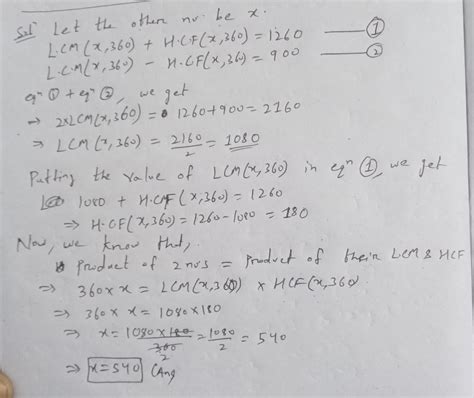 Solⁿ Let the other no. be x.
LCM(x,360) + H.C.F(x,360) = 1260 ——— ①
L.C.M(x,360) - H.C.F(x,360) = 900 ——— ②
eqⁿ ① + eqⁿ ②, we get
→ 2xLCM(x,360) = 1260+900 = 2160
⇒ LCM(x,360) = 2160/2 = 1080
Putting the value of LCM(x,360) in eqⁿ ①, we get
1080 + H.CF(x,360) = 1260
⇒ H.CF(x,360) = 1260-1080 = 180
Now, we know that,
Product of 2 nos = Product of their LCM & HCF
⇒ 360 x x = LCM(x,360) x HCF(x,360)
⇒ 360 x x = 1080 x 180
⇒ x = 1080 x 180/360 2 = 1080/2 = 540
⇒ x = 540 (Ans